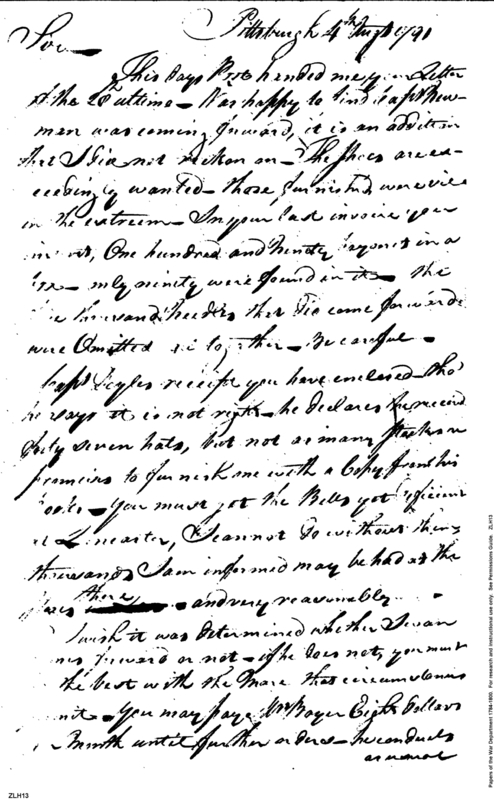 Pittsburgh 4th Augt 1791
Sir
This days Post handed me your Letter
of the 28 ultimo - I was happy to find Capt New-
man was coming forward, it is an addition
that I did not reckon on - The shoes are ex-
ceedingly wanted - those furnished were vile
in the extreem - In your last invoice you
One hundred and Ninety bayonets in a
only ninety were found in it - The
thousand Needles that did come forward
were Omitted altogether - Be careful -
Capt receipt you have enclosed tho'
he says it is not right - he declares he received
forty seven hats, but not as many Stocks
promises to furnish me with a Copy from his
books - You must get the Belts yet deficient
at Lancaster, I cannot do without them
thousands I am informed may be had at the
there and very reasonably
I wish it was determined whether Swan
comes forward or not - if he does not, you must
the best with the Mare that circumstances
- You may pay Mr Boyer Eight Dollars
Month until further orders - he conducts
as usual
Papers of the War Department 1784-1800. For research and instructional use only. See Permissions Guide. ZLH13
ZLH13